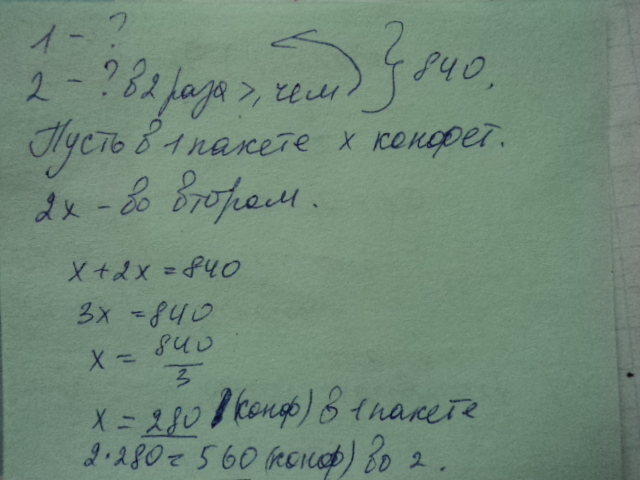 1 - ?
2 - ? в 2 раза >, чем } 840.
Пусть в 1 пакете x конфет.
2x - во втором.
x + 2x = 840
3x = 840
x = 840/3
x = 280 (конф) в 1 пакете
2·280 = 560 (конф) во 2.